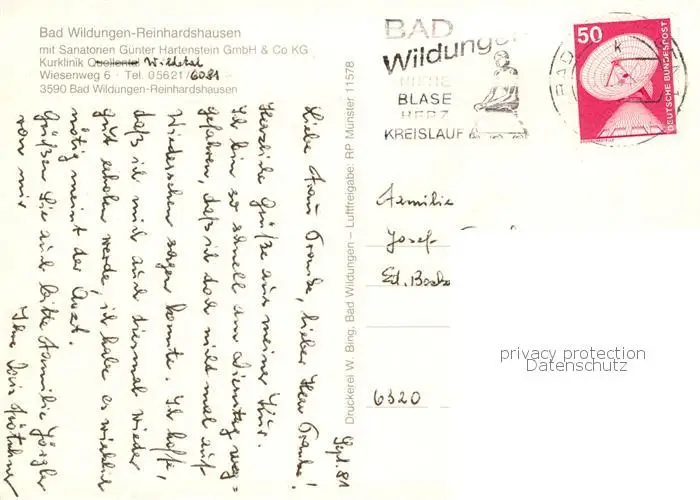 Bad Wildungen-Reinhardshausen
mit Sanatorien Günter Hartenstein GmbH & Co KG
Kurklinik Quellental Wildetal
Wiesenweg 6 · Tel. 05621/6081
3590 Bad Wildungen-Reinhardshausen
Sept. 81
Liebe Frau Franke, lieber Herr Franke!
Herzliche Grüße aus meiner Kur.
Ich bin so schnell am Dienstag weg=
gefahren, daß ich doch nicht mal auf
Wiedersehen sagen konnte. Ich hoffe,
daß ich mich auch diesmal wieder
gut erholen werde, ich habe es wirklich
nötig meint der Arzt.
Grüßen Sie auch bitte Familie
von mir
Ihre
Druckerei W. Bing, Bad Wildungen – Luftfreigabe: RP Münster 11578
BAD
Wildungen
NIERE
BLASE
HERZ
KREISLAUF
BAD
50
DEUTSCHE BUNDESPOST
Familie
Josef
Ed.
6320
privacy protection
Datenschutz